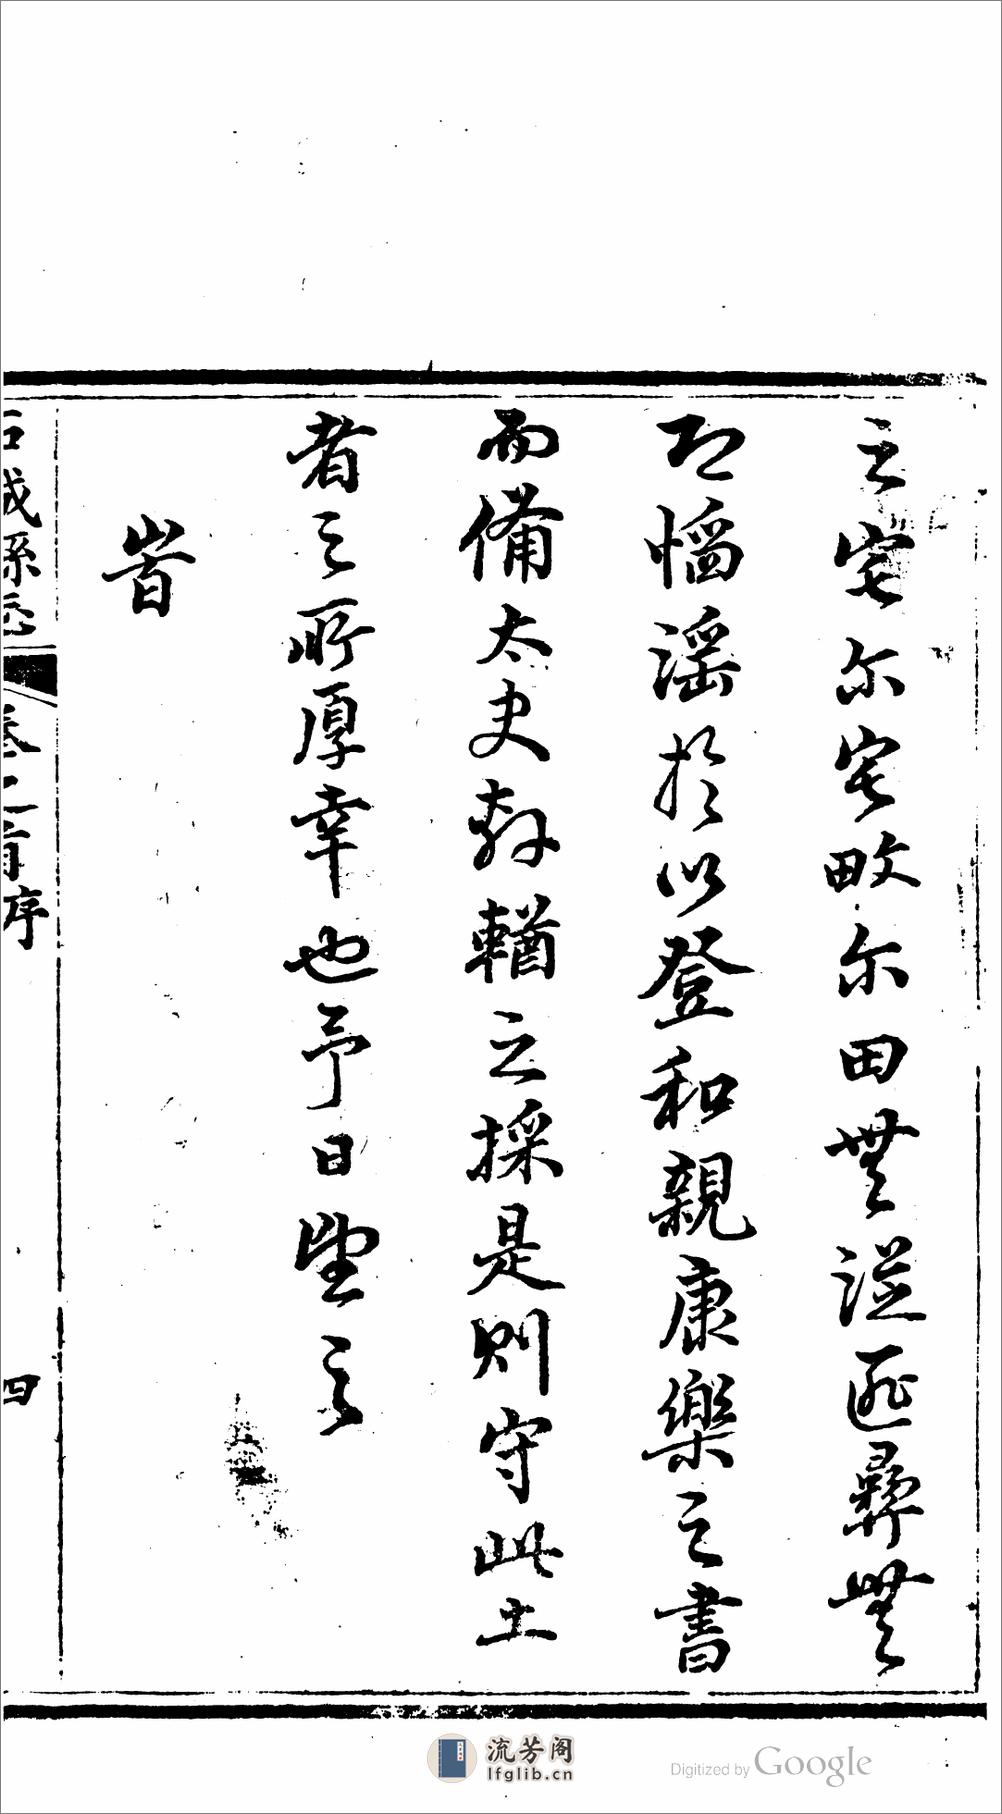 之宅尔宅畋尔田無從匪彝無
即慆滛於以登和親康樂之書
而備太史輶之採是則守此土
者之所厚幸也予日望之
旹
石城縣志
卷之首序
四
流芳阁
lfglib.cn
Digitized by Google